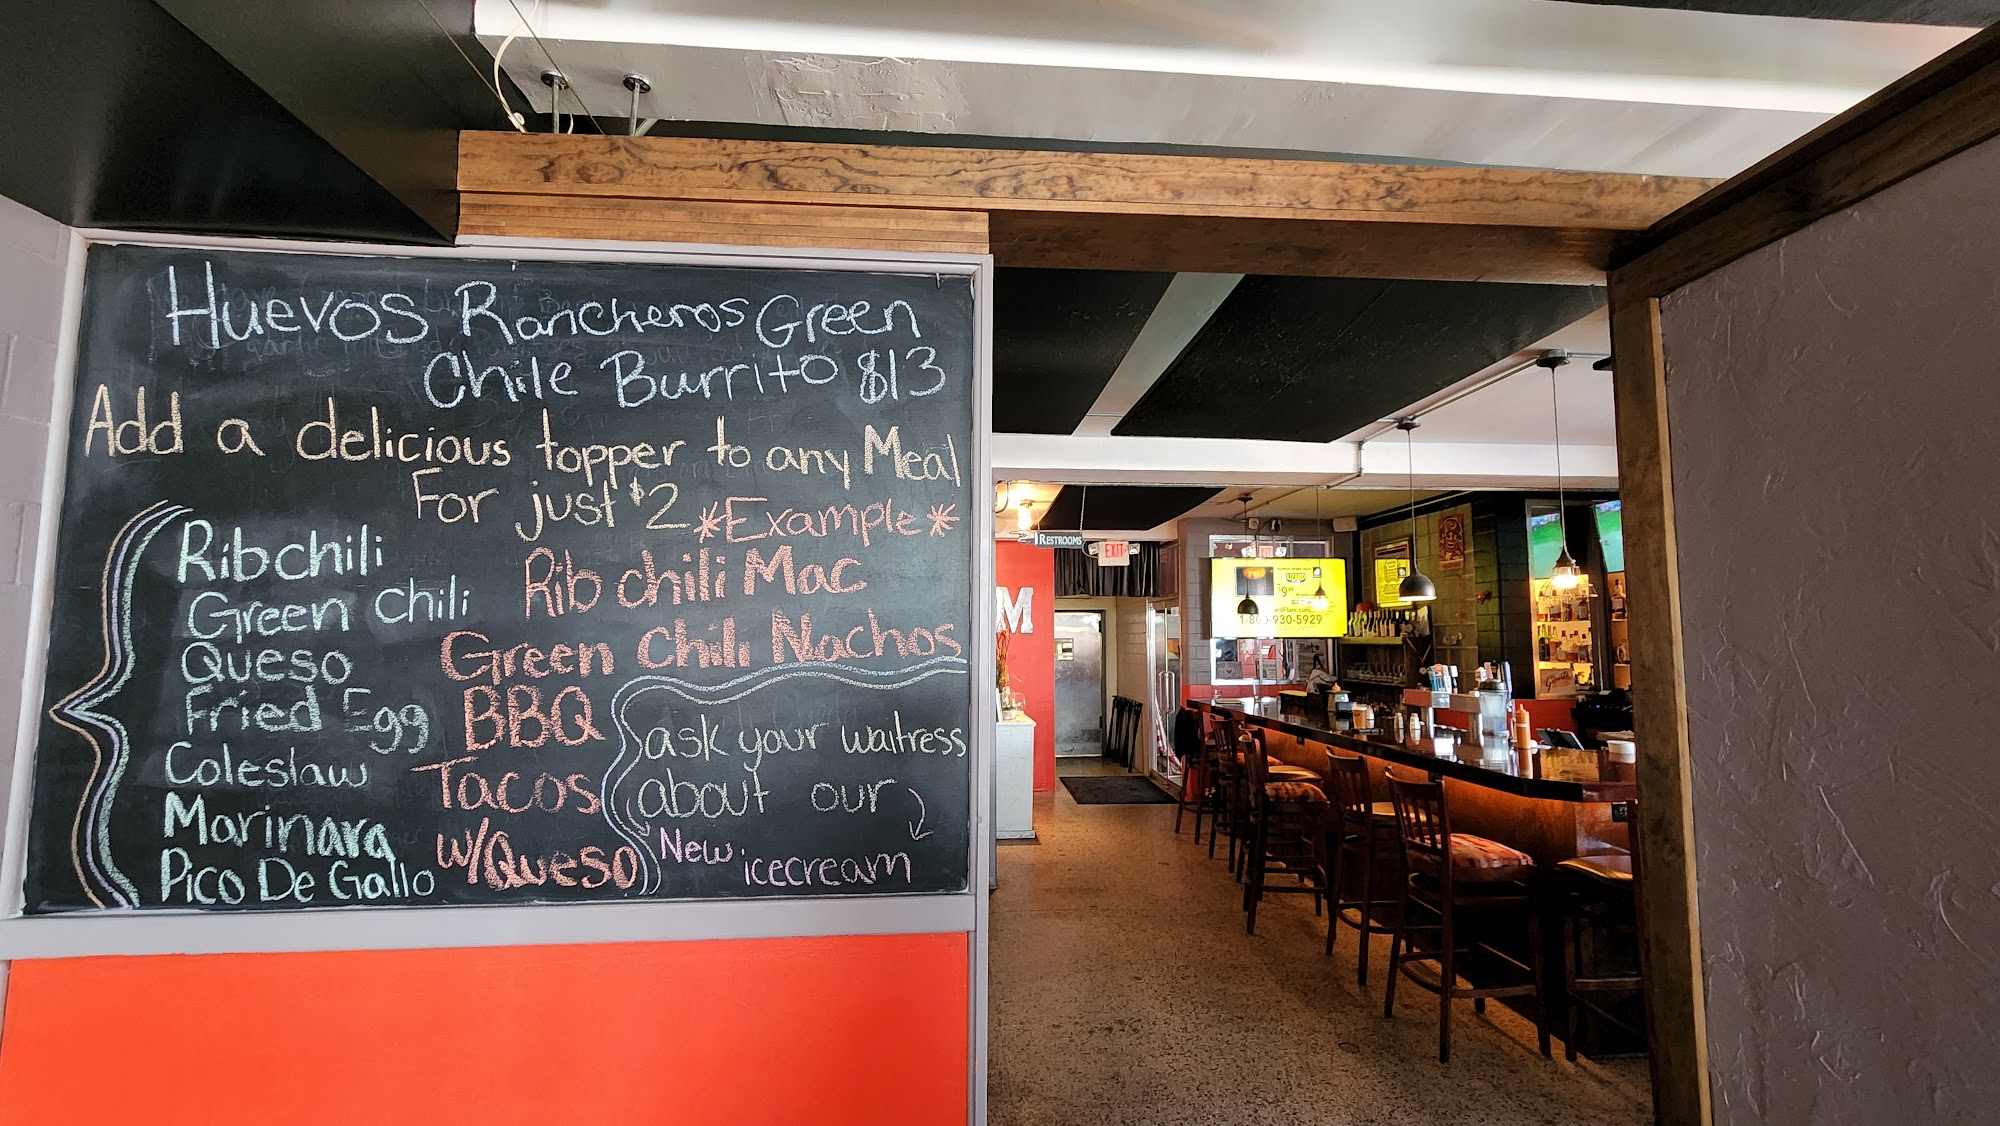 Huevos Rancheros Green
Chile Burrito $13
Add a delicious topper to any Meal
For just $2
*Example*
Ribchili
Green Chili
Queso
Fried Egg
Coleslaw
Marinara
Pico De Gallo
Rib chili Mac
Green Chili Nachos
BBQ
Tacos
w/Queso
ask your waitress
about our
New icecream
RESTROOMS
EXIT
M
1-800-930-5929